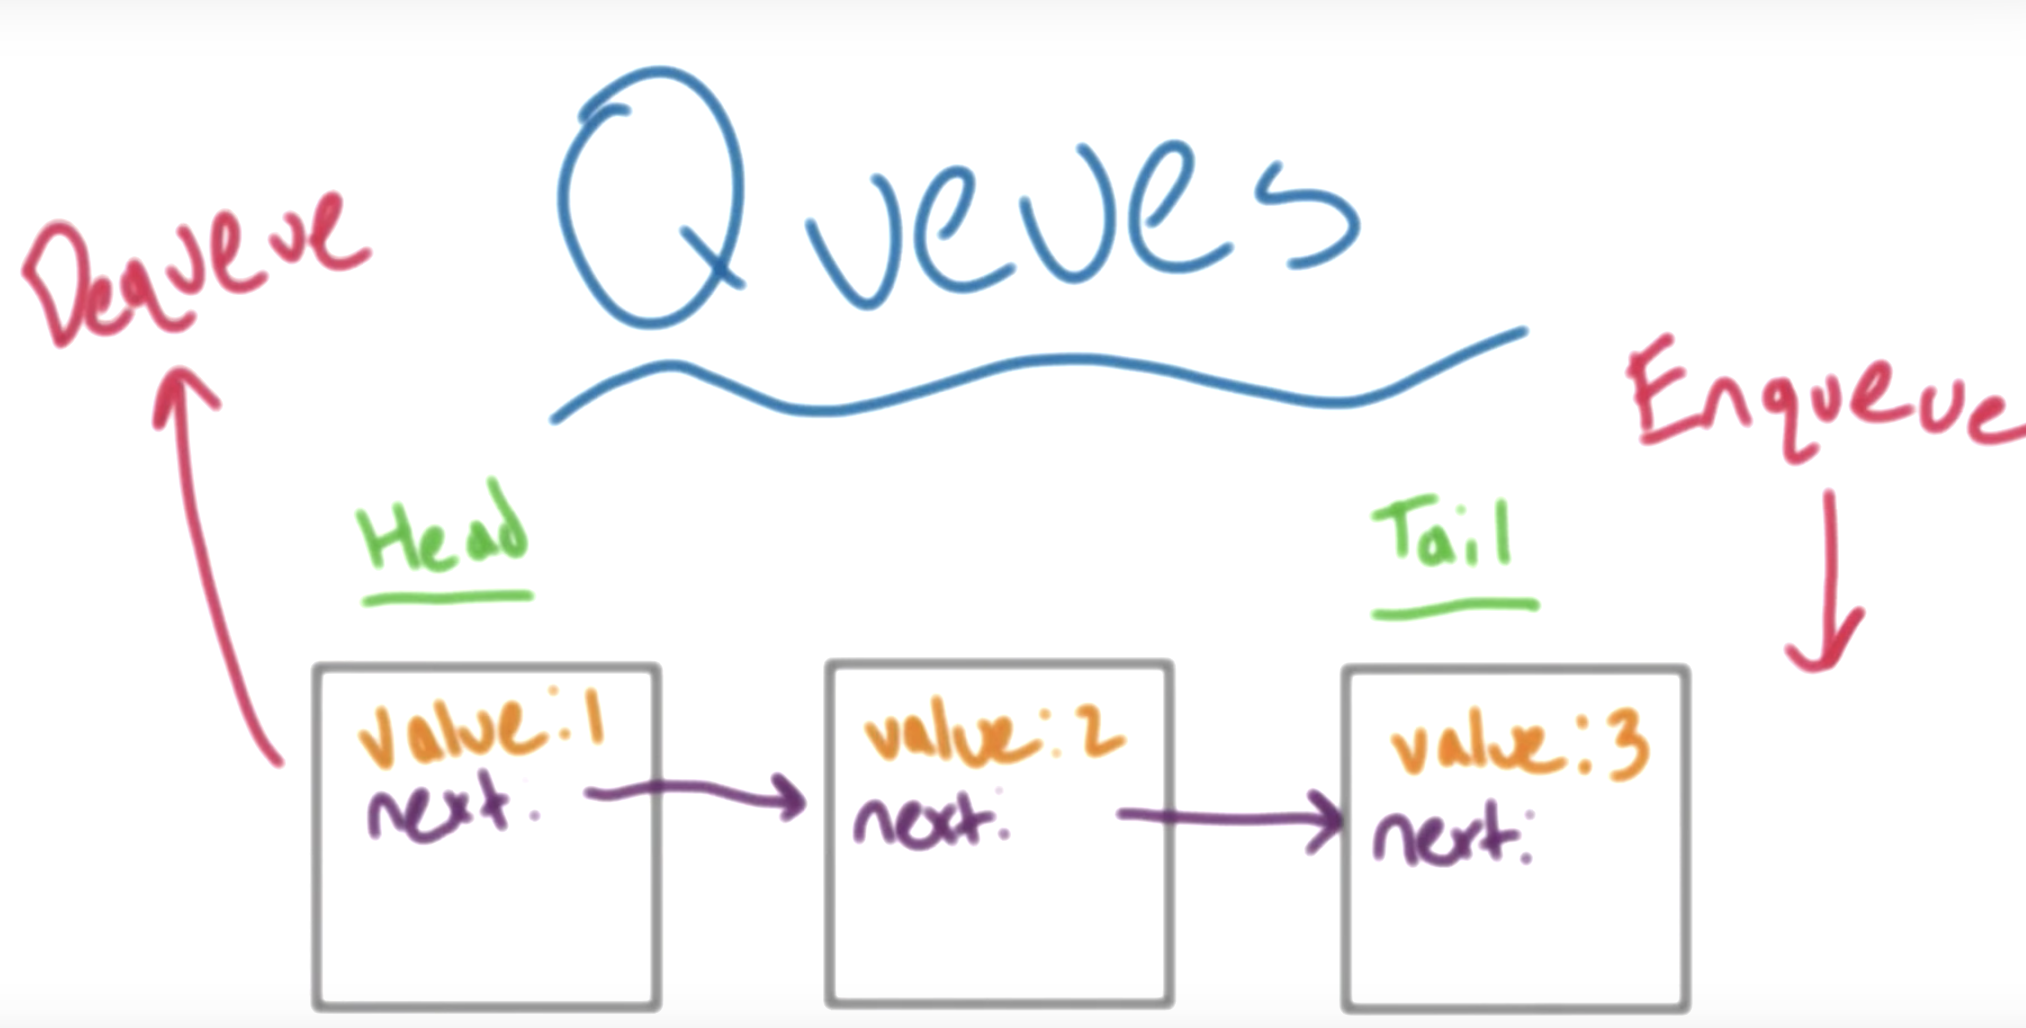 Queues
Dequeue
Enqueue
Head
Tail
value:1
next:
value:2
next:
value:3
next: